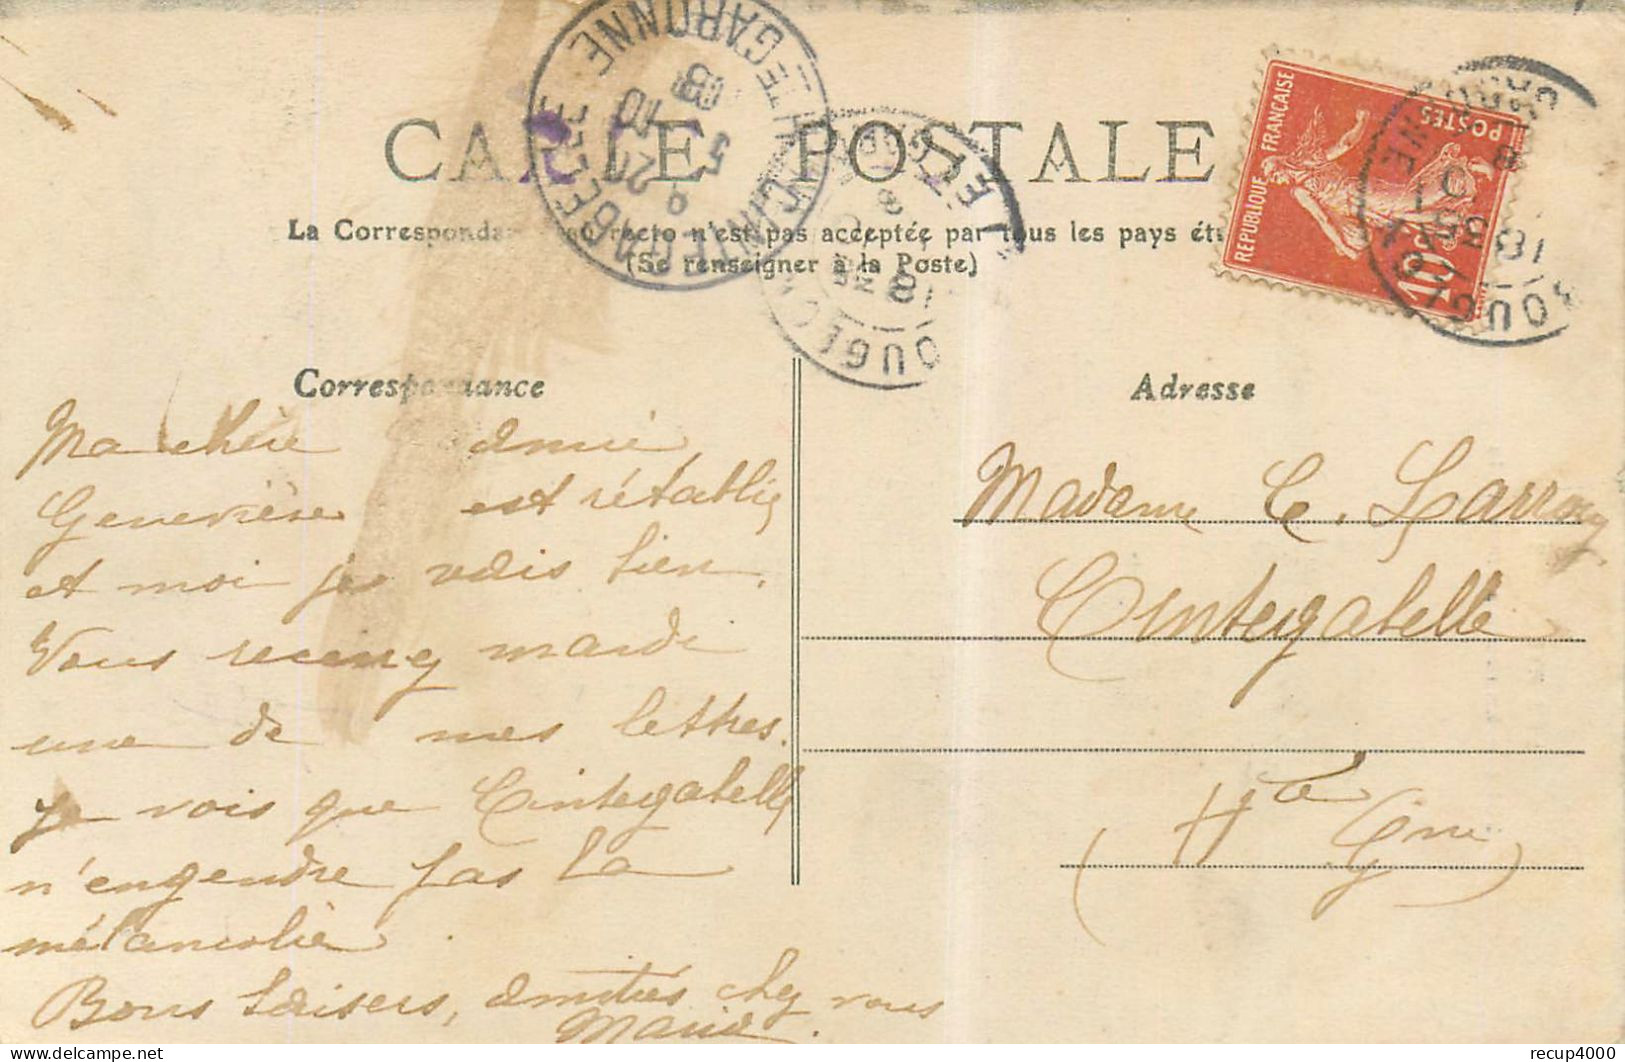 CARTE POSTALE
La Correspondance au recto n'est pas acceptée par tous les pays étr
(Se renseigner à la Poste)
REPUBLIQUE FRANCAISE
POSTES
10c
HTE GARONNE
5 10
08
Correspondance
Adresse
Ma chère amie
Geneviève est rétablie
et moi je vais bien.
Vous recevez mardi
une de mes lettres.
Je vois que Cintegabelle
n'engendre pas la
mélancolie.
Bons baisers, amitiés chez vous
Marie.
Madame C. Larroy
Cintegabelle
(Hte Gne)
recup4000